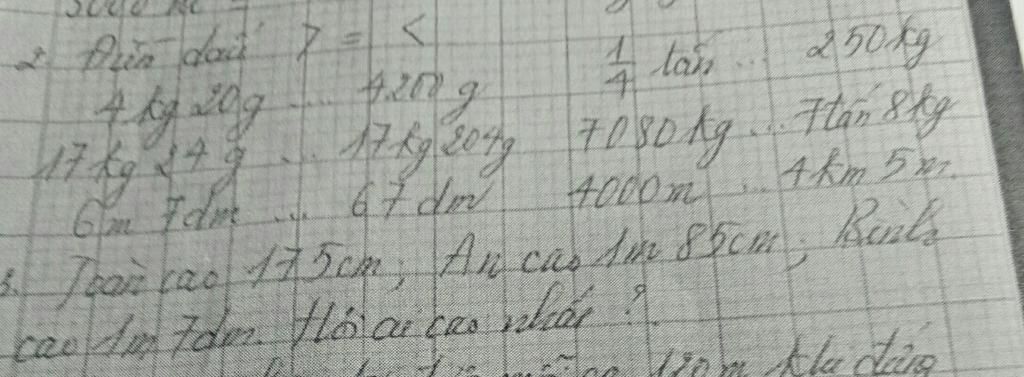 2. Điền dấu > = <
4 kg 20g ... 4200 g
1/4 tấn ... 250 kg
17 kg 24 g ... 17 kg 204g
7080 kg ... 7 tấn 8 kg
6m 7dm ... 67 dm
4000m ... 4 km 5 m.
3. Toàn cao 175cm, An cao 1m 85cm, Bình
cao 1m 7dm. Hỏi ai cao nhất?
120 m